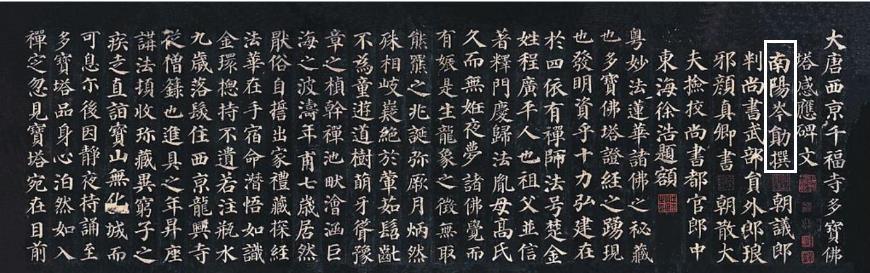 大唐西京千福寺多寶佛
塔感應碑文
南陽岑勛撰 朝議郎
判尚書武部員外郎琅
邪顏真卿書 朝散大
夫撿挍尚書都官郎中
東海徐浩題額
粵妙法蓮華諸佛之秘藏
也多寶佛塔證經之踴現
也發明資乎十力弘建在
於四依有禪師法号楚金
姓程廣平人也祖父並信
著釋門慶歸法胤母高氏
久而無妊夜夢諸佛覺而
有娠是生龍象之徵無取
熊羆之兆誕弥厥月炳然
殊相岐嶷絕於葷茹髫齔
不為童遊道樹萌牙聳豫
章之楨幹禪池畎澮涵巨
海之波濤年甫七歲居然
厭俗自誓出家禮藏探經
法華在手宿命潛悟如識
金環揔持不遺若注瓶水
九歲落髮住西京龍興寺
從僧籙也進具之年昇座
講法頓收珎藏異窮子之
疾走直詣寶山無化城而
可息尒後因靜夜持誦至
多寶塔品身心泊然如入
禪定忽見寶塔宛在目前